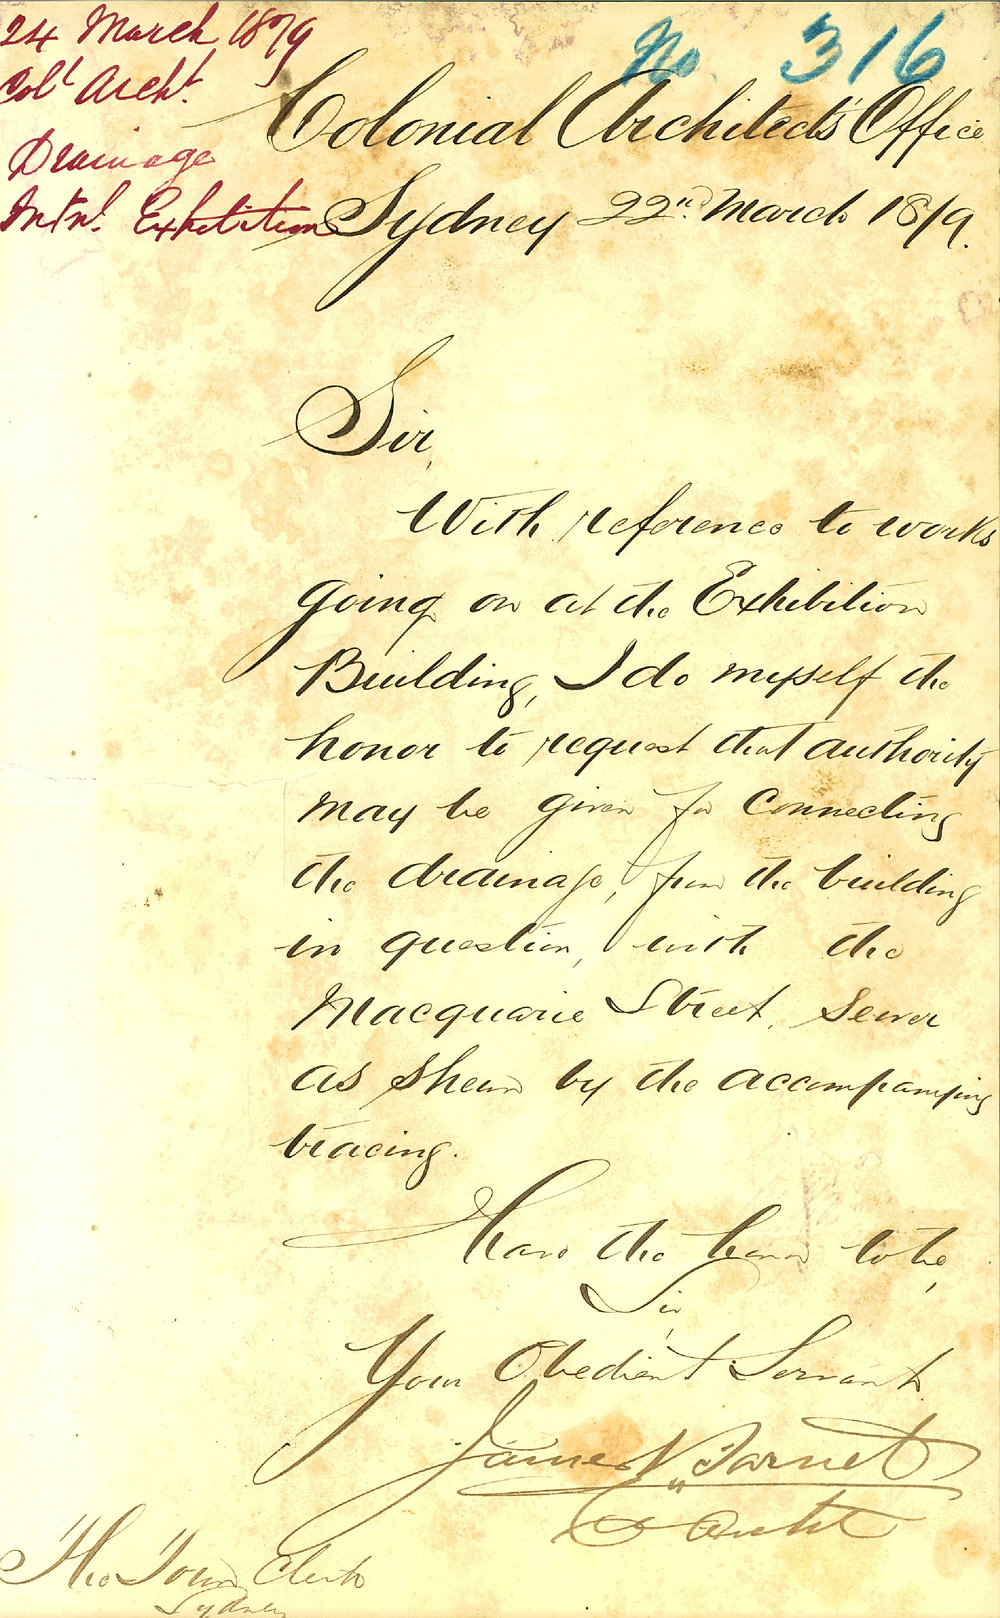 24 March 1879
Colˡ Archᵗ.
Drainage
Intnˡ. Exhibition
No. 316
Colonial Architects Office
Sydney 22ⁿᵈ March 1879.
Sir,
With reference to works
going on at the Exhibition
Building, I do myself the
honor to request that authority
may be given for connecting
the drainage, from the building
in question, with the
Macquarie Street Sewer
as shewn by the accompanying
tracing.
Have the honor to be,
Sir,
Your Obedient Servant
James Barnet
C Archt
The Town Clerk
Sydney